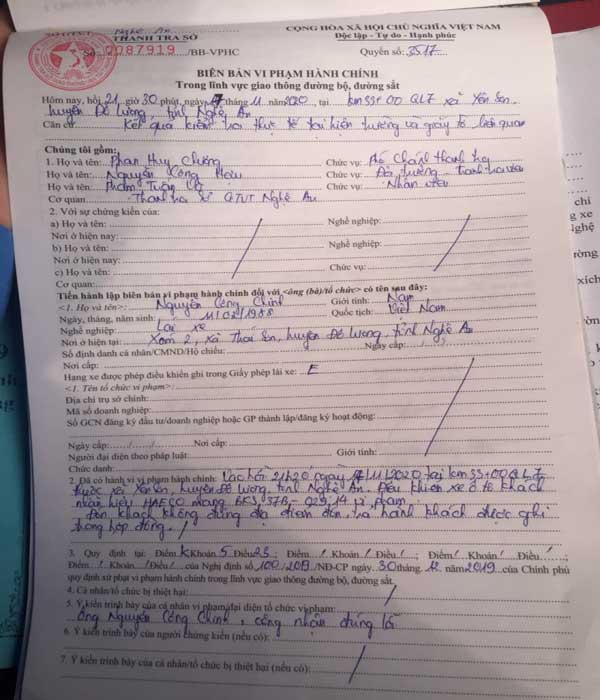 Nghệ An
CỘNG HÒA XÃ HỘI CHỦ NGHĨA VIỆT NAM
THANH TRA SỞ
Độc lập - Tự do - Hạnh phúc
Số: 0087919 /BB-VPHC
Quyển số: 3517
BIÊN BẢN VI PHẠM HÀNH CHÍNH
Trong lĩnh vực giao thông đường bộ, đường sắt
Hôm nay, hồi 21 giờ 30 phút, ngày 17 tháng 11 năm 2020, tại km 55+00 QL7 xã Yên Sơn
huyện Đô Lương, tỉnh Nghệ An
Căn cứ Kết quả kiểm tra thực tế tại hiện trường và giấy tờ liên quan
Chúng tôi gồm:
1. Họ và tên: Phan Huy Chương Chức vụ: Phó Chánh thanh tra
Họ và tên: Nguyễn Công Chức vụ: Đội trưởng thanh tra viên
Họ và tên: Phạm Tuấn Vũ Chức vụ: Nhân viên
Cơ quan Thanh tra Sở GTVT Nghệ An
2. Với sự chứng kiến của:
a) Họ và tên: Nghề nghiệp:
Nơi ở hiện nay:
b) Họ và tên: Nghề nghiệp:
Nơi ở hiện nay:
c) Họ và tên: Chức vụ:
Cơ quan:
Tiến hành lập biên bản vi phạm hành chính đối với <ông (bà)/tổ chức> có tên sau đây:
<1. Họ và tên>: Nguyễn Công Chinh Giới tính: Nam
Ngày, tháng, năm sinh: 11/02/1988 Quốc tịch: Việt Nam
Nghề nghiệp: Lái xe
Nơi ở hiện tại: Xóm 2, xã Thái Sơn, huyện Đô Lương, tỉnh Nghệ An
Số định danh cá nhân/CMND/Hộ chiếu: Ngày cấp: / /
Nơi cấp:
Hạng xe được phép điều khiển ghi trong Giấy phép lái xe: E
<1. Tên tổ chức vi phạm>:
Địa chỉ trụ sở chính:
Mã số doanh nghiệp:
Số GCN đăng ký đầu tư/doanh nghiệp hoặc GP thành lập/đăng ký hoạt động:
Ngày cấp: / / Nơi cấp:
Người đại diện theo pháp luật: Giới tính:
Chức danh:
2. Đã có hành vi vi phạm hành chính: Lúc hồi 21h20 ngày 17/11/2020 tại km 55+00 QL7
thuộc xã Yên Sơn, huyện Đô Lương, tỉnh Nghệ An. Điều khiển xe ô tô khách
nhãn hiệu HAECO mang BKS 37B-029.14 vi phạm:
Đón khách không đúng địa điểm đón, trả hành khách được ghi
trong hợp đồng.
3. Quy định tại: Điểm K Khoản 5 Điều 23; Điểm / Khoản / Điều /; Điểm / Khoản / Điều /;
Điểm / Khoản / Điều / của Nghị định số 100/2019/NĐ-CP ngày 30 tháng 12 năm 2019 của Chính phủ
quy định xử phạt vi phạm hành chính trong lĩnh vực giao thông đường bộ, đường sắt.
4. Cá nhân/tổ chức bị thiệt hại:
5. Ý kiến trình bày của cá nhân vi phạm/đại diện tổ chức vi phạm:
Ông Nguyễn Công Chinh, công nhận đúng lỗi
6. Ý kiến trình bày của người chứng kiến (nếu có):
7. Ý kiến trình bày của cá nhân/tổ chức bị thiệt hại (nếu có):
chi
g xe
Nghệ
rờng
xích